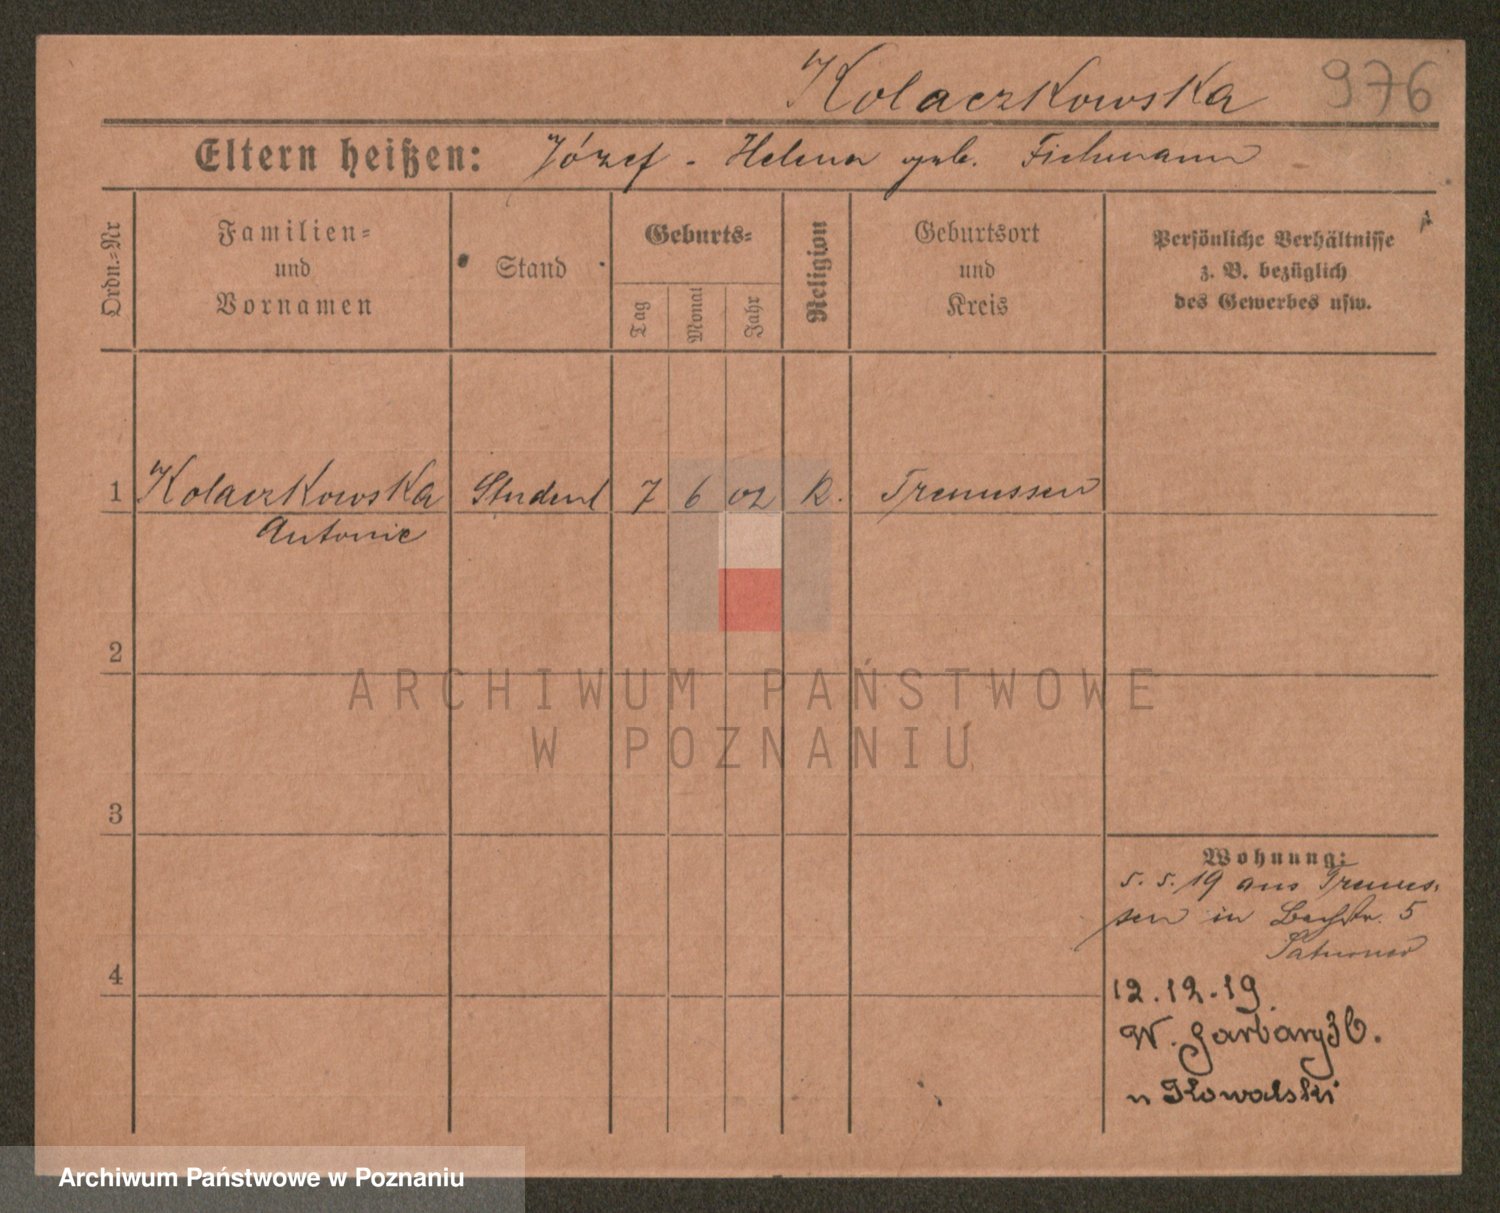 Kolaczkowska 976
Eltern heißen: Józef - Helena geb. Fichmann
Ordn.=Nr
Familien=
und
Vornamen
Stand
Geburts=
Tag
Monat
Jahr
Religion
Geburtsort
und
Kreis
Persönliche Verhältnisse
z. B. bezüglich
des Gewerbes usw.
1 Kolaczkowska Student 7 6 02 k. Tremessen
Antonie
2
ARCHIWUM PAŃSTWOWE
W POZNANIU
3
Wohnung:
5. 5. 19 aus Tremes-
sen in Bachstr. 5
4
12.12.19
W. Garbary 36.
u Kowalski
Archiwum Państwowe w Poznaniu